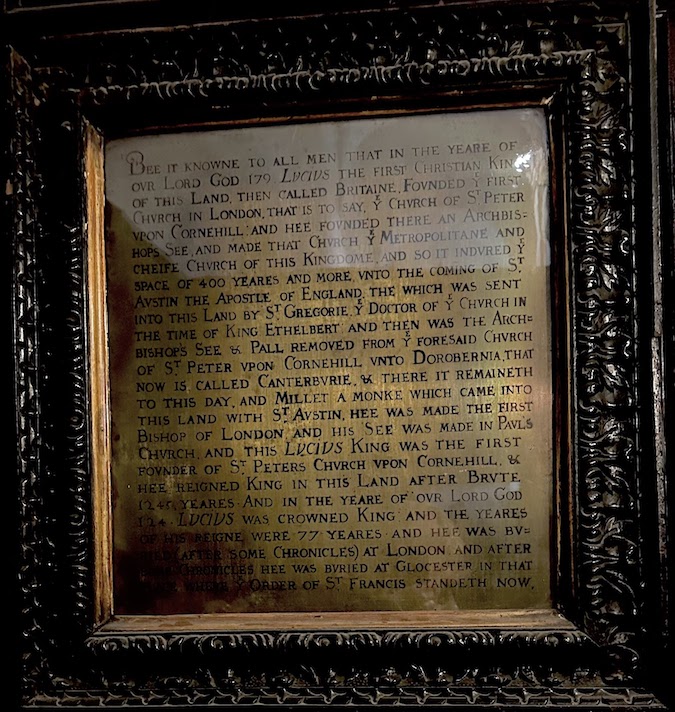 BEE IT KNOWNE TO ALL MEN THAT IN THE YEARE OF
OVR LORD GOD 179. LVCIVS THE FIRST CHRISTIAN KING
OF THIS LAND, THEN CALLED BRITAINE, FOVNDED Yͤ FIRST
CHVRCH IN LONDON, THAT IS TO SAY, Yͤ CHVRCH OF Sᵀ PETER
VPON CORNEHILL; AND HEE FOVNDED THERE AN ARCHBIS=
HOPS SEE, AND MADE THAT CHVRCH Yͤ METROPOLITANE AND
CHEIFE CHVRCH OF THIS KINGDOME, AND SO IT INDVRED Yͤ
SPACE OF 400 YEARES AND MORE, VNTO THE COMING OF Sᵀ
AVSTIN THE APOSTLE OF ENGLAND, THE WHICH WAS SENT
INTO THIS LAND BY Sᵀ GREGORIE, Yͤ DOCTOR OF Yͤ CHVRCH IN
THE TIME OF KING ETHELBERT AND THEN WAS THE ARCH=
BISHOPS SEE & PALL REMOVED FROM Yͤ FORESAID CHVRCH
OF Sᵀ PETER VPON CORNEHILL VNTO DOROBERNIA, THAT
NOW IS CALLED CANTERBVRIE, & THERE IT REMAINETH
TO THIS DAY, AND MILLET A MONKE WHICH CAME INTO
THIS LAND WITH Sᵀ AVSTIN, HEE WAS MADE THE FIRST
BISHOP OF LONDON AND HIS SEE WAS MADE IN PAVL'S
CHVRCH, AND THIS LVCIVS KING WAS THE FIRST
FOVNDER OF Sᵀ PETERS CHVRCH VPON CORNEHILL, &
HEE REIGNED KING IN THIS LAND AFTER BRVTE
1245 YEARES. AND IN THE YEARE OF OVR LORD GOD
124. LVCIVS WAS CROWNED KING AND THE YEARES
OF HIS REIGNE WERE 77 YEARES AND HEE WAS BV=
RIED (AFTER SOME CHRONICLES) AT LONDON AND AFTER
CHRONICLES HEE WAS BVRIED AT GLOCESTER IN THAT
WHERE Yͤ ORDER OF Sᵀ FRANCIS STANDETH NOW.